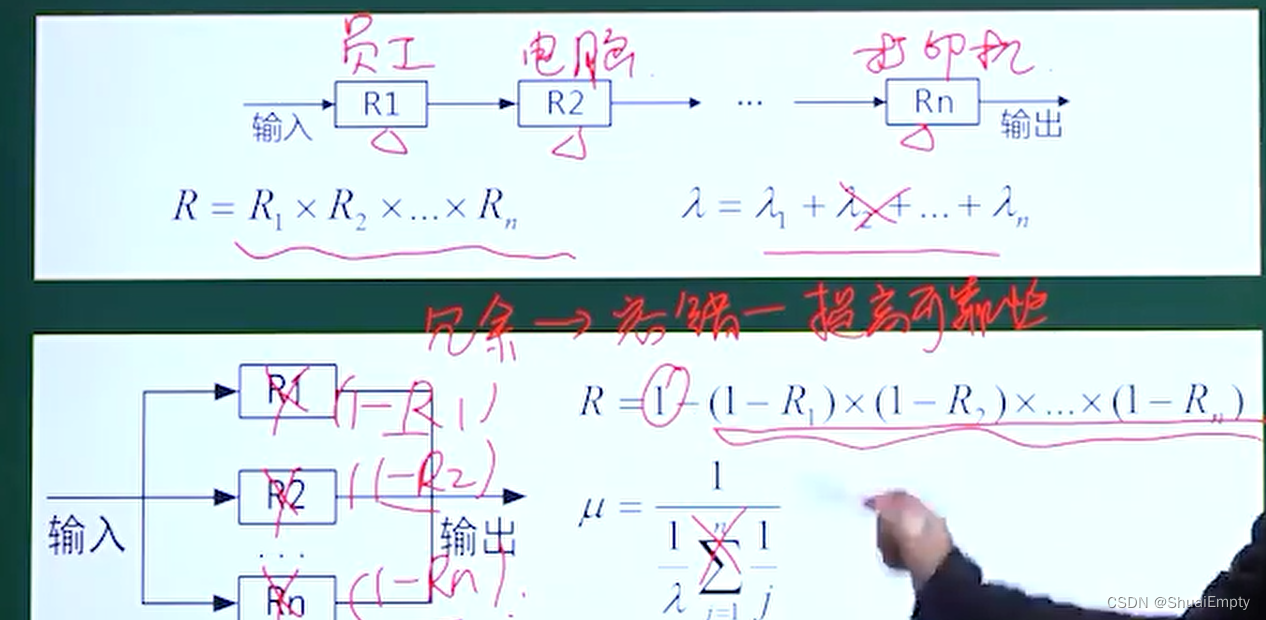 员工 电脑 打印机
输入 R1 R2 ... Rn 输出
R = R₁ × R₂ × ... × Rₙ λ = λ₁ + λ₂ + ... + λₙ
冗余 → 容错 — 提高可靠性
R1 (1-R1) R = 1 - (1 - R₁) × (1 - R₂) × ... × (1 - Rₙ)
R2 (1-R2)
输入 输出
...
Rn (1-Rn)
μ = 1 / (1/λ ∑ⁿⱼ₌₁ 1/j)
CSDN @ShuaiEmpty